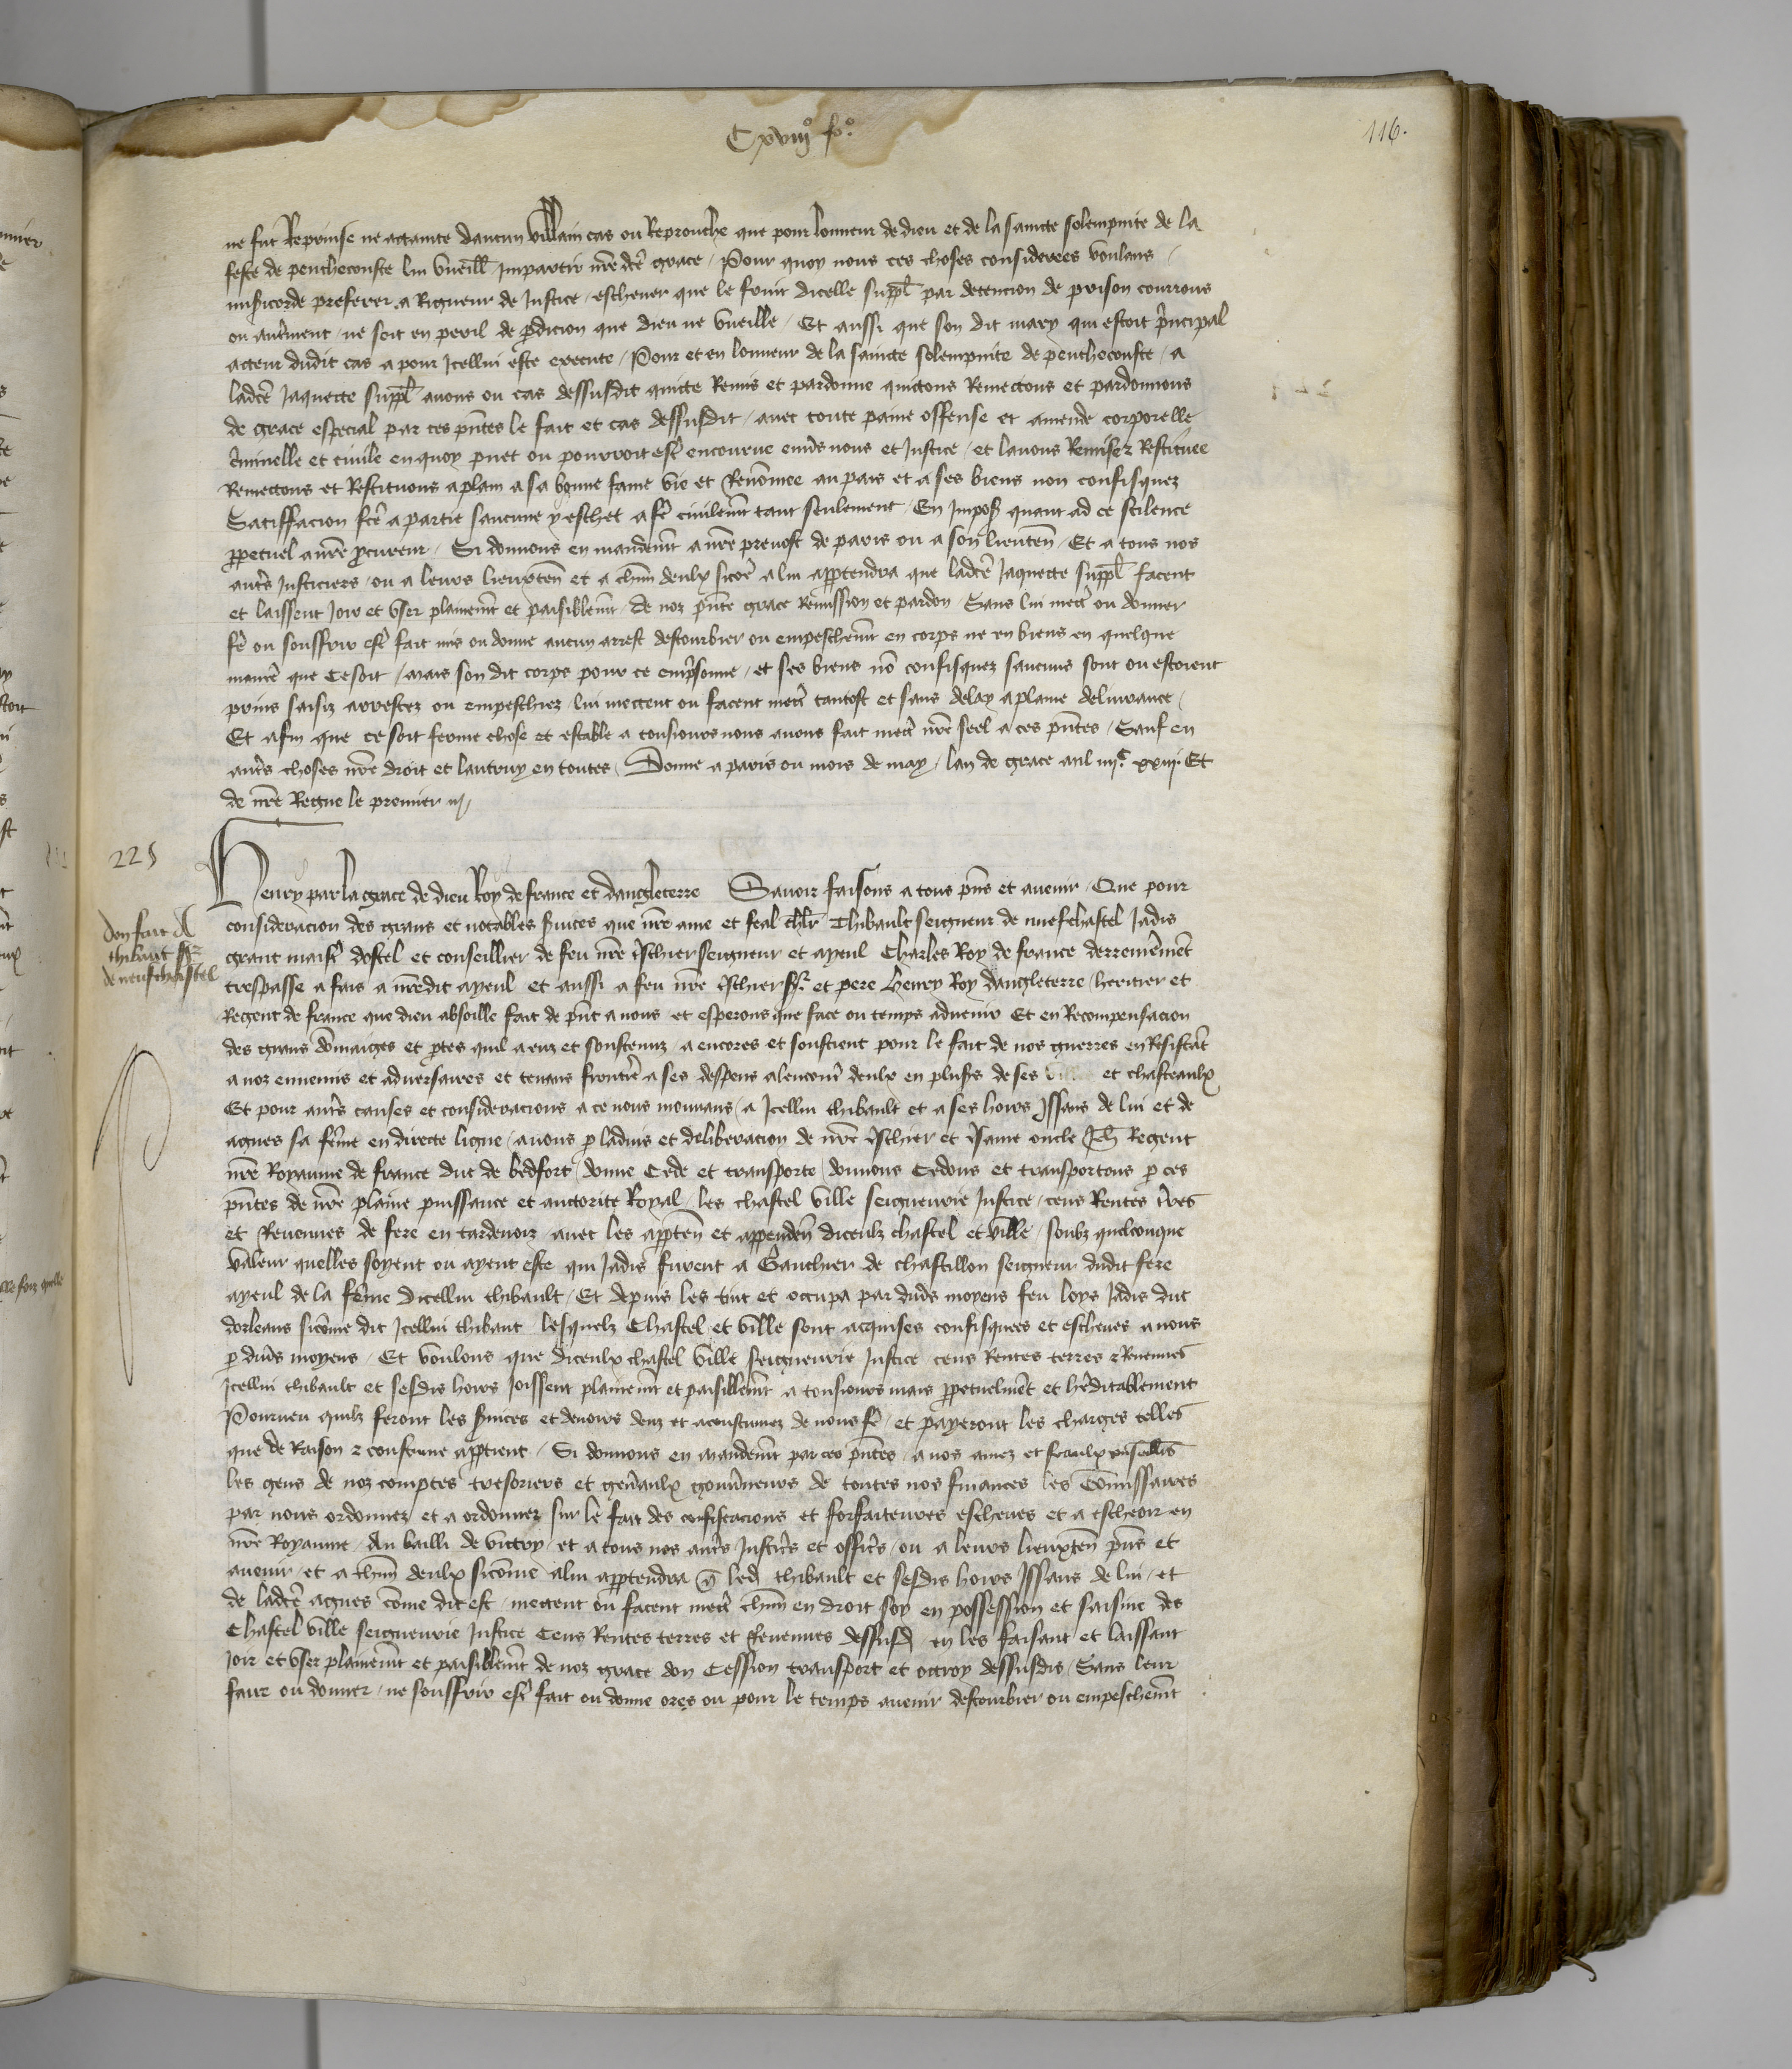 Cxviijo fo.
116.
ne fut Reprinse ne actainte daucun villain cas ou Reprouche que pour lonneur de dieu et de la saincte solempnite de la
feste de penthecouste lui vueill impartir nre dce grace / Pour quoy nous ces choses considerees voulans
misicorde preferer a Rigueur de Justice / eschever que le fruit dicelle suppl par detencion de prison courroux
ou autrement / ne soit en peril de pdicion que dieu ne vueille / Et aussi que son dit mary qui estoit principal
acteur dudit cas a pour Icellui este execute / Pour et en lonneur de la saincte solempnite de penthecouste / a
ladce Jaquette suppl avons ou cas dessusdit quicte Remis et pardonne quictons Remectons et pardonnons
de grace especial par ces pntes le fait et cas dessusdit / avec toute paine offense et amende corporelle
criminelle et civile en quoy puet ou pourroit est encourue envs nous et Justice / et lavons Remise & Restituee
Remectons et Restituons a plain a sa bonne fame vie et Renomee au pais et a ses biens non confisquez
Satiffacion fce a partie saucune y eschet a fe civilemt tant seulement / En Impos quant ad ce scilence
ppetuel a nre pcureur / Si donnons en mandemt a nre prevost de paris ou a son lieuten / Et a tous nos
autrs Justiciers / ou a leurs lieuxten et a chun deulx sicoe a lui apptendra que ladce Jaquette suppl facent
et laissent Joir et vser plainemt et paisiblemt / de noz pnte grace Remission et pardon / Sans lui mect ou donner
fe ou souffrir est fait mis ou donne aucun arrest destourbier ou empeschemt en corps ne en biens en quelque
manie que ce soit / mais son dit corps pour ce emprsonne / et ses biens no confisquez saucuns sont ou estoient
prins saisiz arrestez ou empeschiez / lui mectent ou facent mect tantost et sans delay a plaine delivrance /
Et afin que ce soit ferme chose et estable a tousiours nous avons fait mect nre seel a ces pntes / Sauf en
autrs choses nre droit et lautruy en toutes / Donne a paris ou mois de may / lan de grace mil iiijc xxiij Et
de nre Regne le premier
225
don fait A
thibaut sgr
de neufchastel
Henry par la grace de dieu Roy de france et dangleterre Savoir faisons a tous pns et avenir / Que pour
consideracion des grans et notables svices que nre ame et feal chlr Thibault seigneur de nuefchastel Jadis
grant maist dostel et conseillier de feu nre tschier seigneur et ayeul Charles Roy de france derremement
trespasse a fais a nredit ayeul et aussi a feu nre tschier sr et pere henry Roy dangleterre / heritier et
Regent de france que dieu absoille fait de pnt a nous et esperons que face ou temps advenir Et en Recompensacion
des grans domaiges et ptes quil a euz et soustenuz / a encores et soustient pour le fait de nos guerres en Resistat
a noz ennemis et adversaires et tenans frontie a ses despens alencont deulx en plusrs de ses et chasteaulx
Et pour autrs causes et consideracions a ce nous mouvans / a Icellui thibault et a ses hoirs Issans de lui et de
agnes sa feme en directe ligne / avons p ladvis et deliberacion de nre tschier et tsame oncle Jeh Regent
nre Royaume de france duc de bedfort / donne Cede et transporte / donnons Cedons et transportons p ces
pntes de nre plaine puissance et auctorite Royal / les chastel ville seigneurie Justice / cens Rentes tres
et Revenues de fere en tardenoiz / avec les apptn et appenden diceulz chastel et ville / soubz quelconque
valeur quelles soyent ou ayent este qui Jadis furent a Gauchier de chastillon seigneur dudit fere
ayeul de la feme dicellui thibault / Et depuis les tint et occupa par duds moyens feu loys Jadis duc
dorleans sicome dit Icellui thibaut / lesquelz Chastel et ville sont acquises confisquees et escheues a nous
p duds moyens / Et voulons que diceulx chastel ville seigneurie Justice cens Rentes terres & Revenues
Icellui thibault et sesdis hoirs Joissent plainemt et paisiblemt a tousiours mais ppetuelmet et heditablement
Pourveu quilz feront les svices et devoirs deuz et acoustumez de nous fe / et payeront les charges telles
que de Raison & coustume apptient / Si donnons en mandemt par ces pntes / a nos amez et feaulx
les gens de noz comptes tresoriers et genaulx gouvneurs de toutes nos finances les Comissaires
par nous ordonnez et a ordonnez sur le fait des confiscacions et forfaitures escheues et a escheoir en
nre Royaume / Au bailli de victry / et a tous nos autrs Justicrs et officrs / ou a leurs lieuxten pns et
avenir / et a chun deulx sicome a lui apptendra q led thibault et sesdis hoirs Issans de lui / et
de ladce agnes come dit est / mectent ou facent mect chun en droit soy en possession et saisine des
Chastel ville seigneurie Justice Cens Rentes terres et Revenues dessusd / en les faisant et laissant
Joir et vser plainemt et paisiblemt de noz grace don Cession transport et octroy dessusdis / Sans leur
faire ou donner / ne souffrir est fait ou donne ores ou pour le temps avenir destourbier ou empeschemt